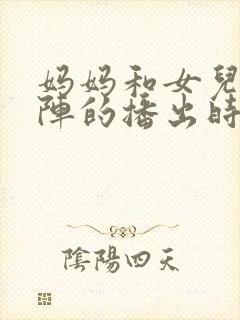 妈妈和女兒
陣的播出時
陰陽四天